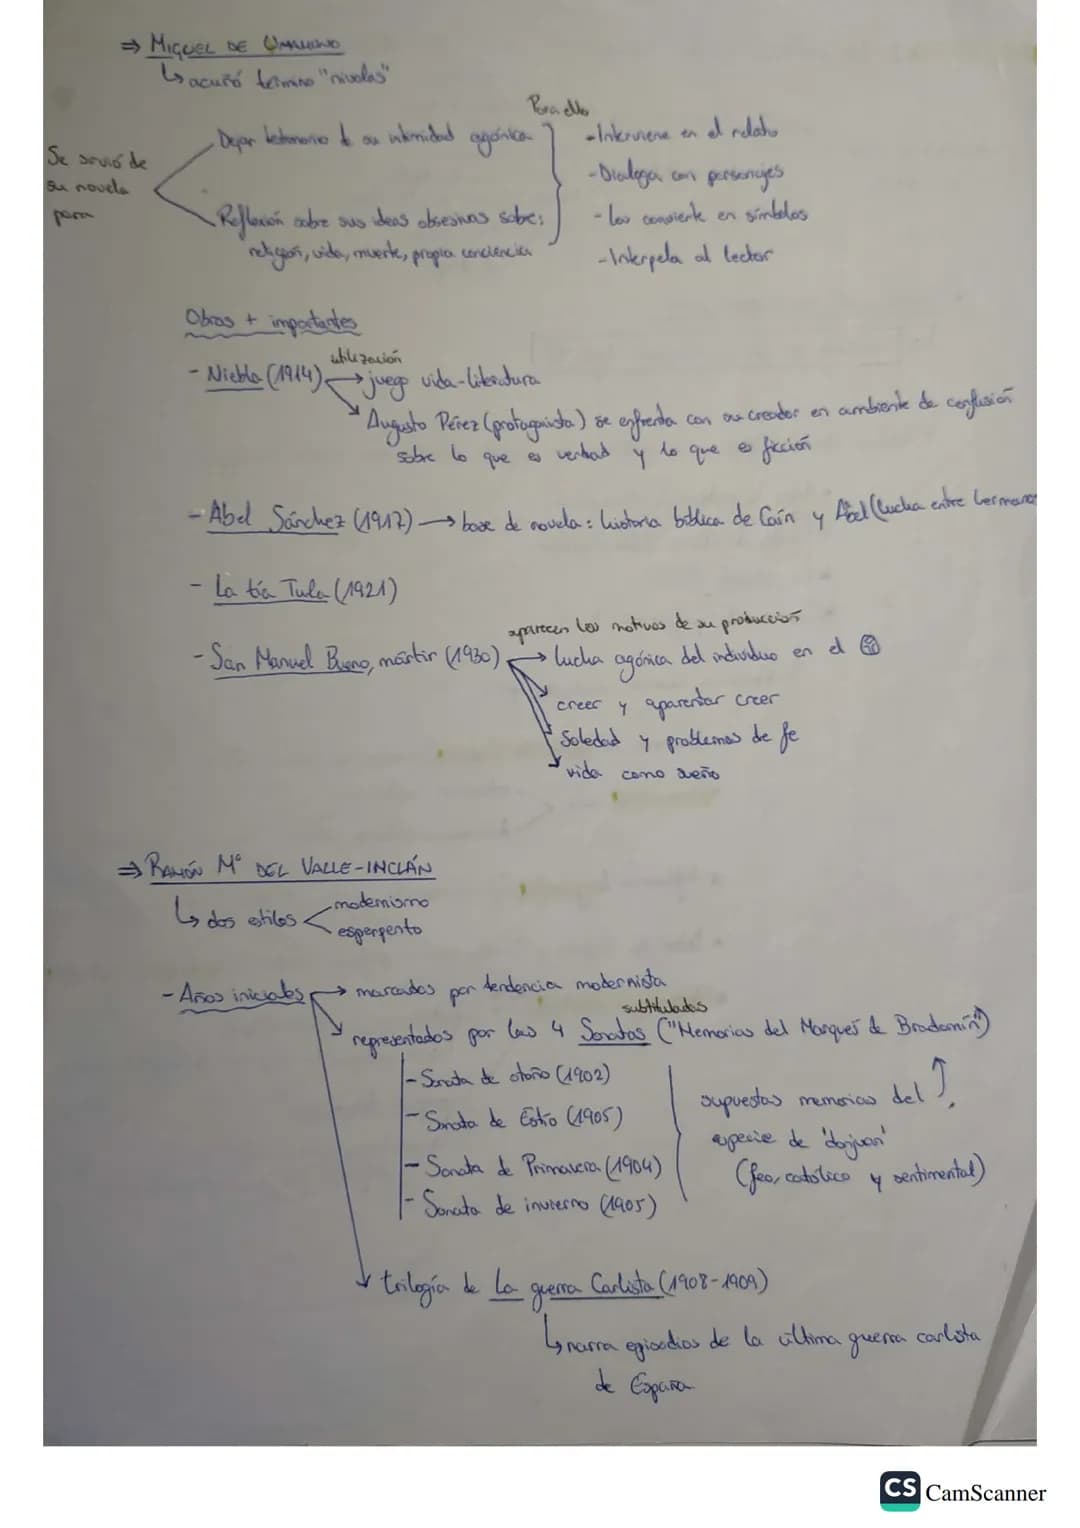 ⇒ MIGUEL DE UNAMUNO
↳ acuñó término "nivolas"
Se sirvió de su novela para
Dejar testimonio de su intimidad agónica
Reflexión sobre sus ideas obsesivas sobre:
religión, vida, muerte, propia conciencia
Para ello
- Interviene en el relato
- Dialoga con personajes
- los convierte en símbolos
- Interpela al lector
Obras + importantes
- Niebla (1914) utilización → juego vida-literatura
Augusto Pérez (protagonista) se enfrenta con su creador en ambiente de confusión
sobre lo que es verdad y lo que es ficción
- Abel Sánchez (1917) → base de novela: historia bíblica de Caín y Abel (lucha entre hermanos
- La tía Tula (1921)
aparecen los motivos de su producción
- San Manuel Bueno, mártir (1930) → lucha agónica del individuo en el
creer y aparentar creer
Soledad y problemas de fe
vida como sueño
⇒ RAMÓN Mª DEL VALLE-INCLÁN
↳ dos estilos
modernismo
esperpento
- Años iniciales → marcados por tendencia modernista
subtituladas
representados por las 4 Sonatas ("Memorias del Marqués de Bradomín")
- Sonata de otoño (1902)
- Sonata de Estío (1905)
- Sonata de Primavera (1904)
- Sonata de invierno (1905)
supuestas memorias del
especie de 'donjuan'
(feo, católico y sentimental)
trilogía de La guerra Carlista (1908-1909)
↳ narra episodios de la última guerra carlista
de España
CS CamScanner